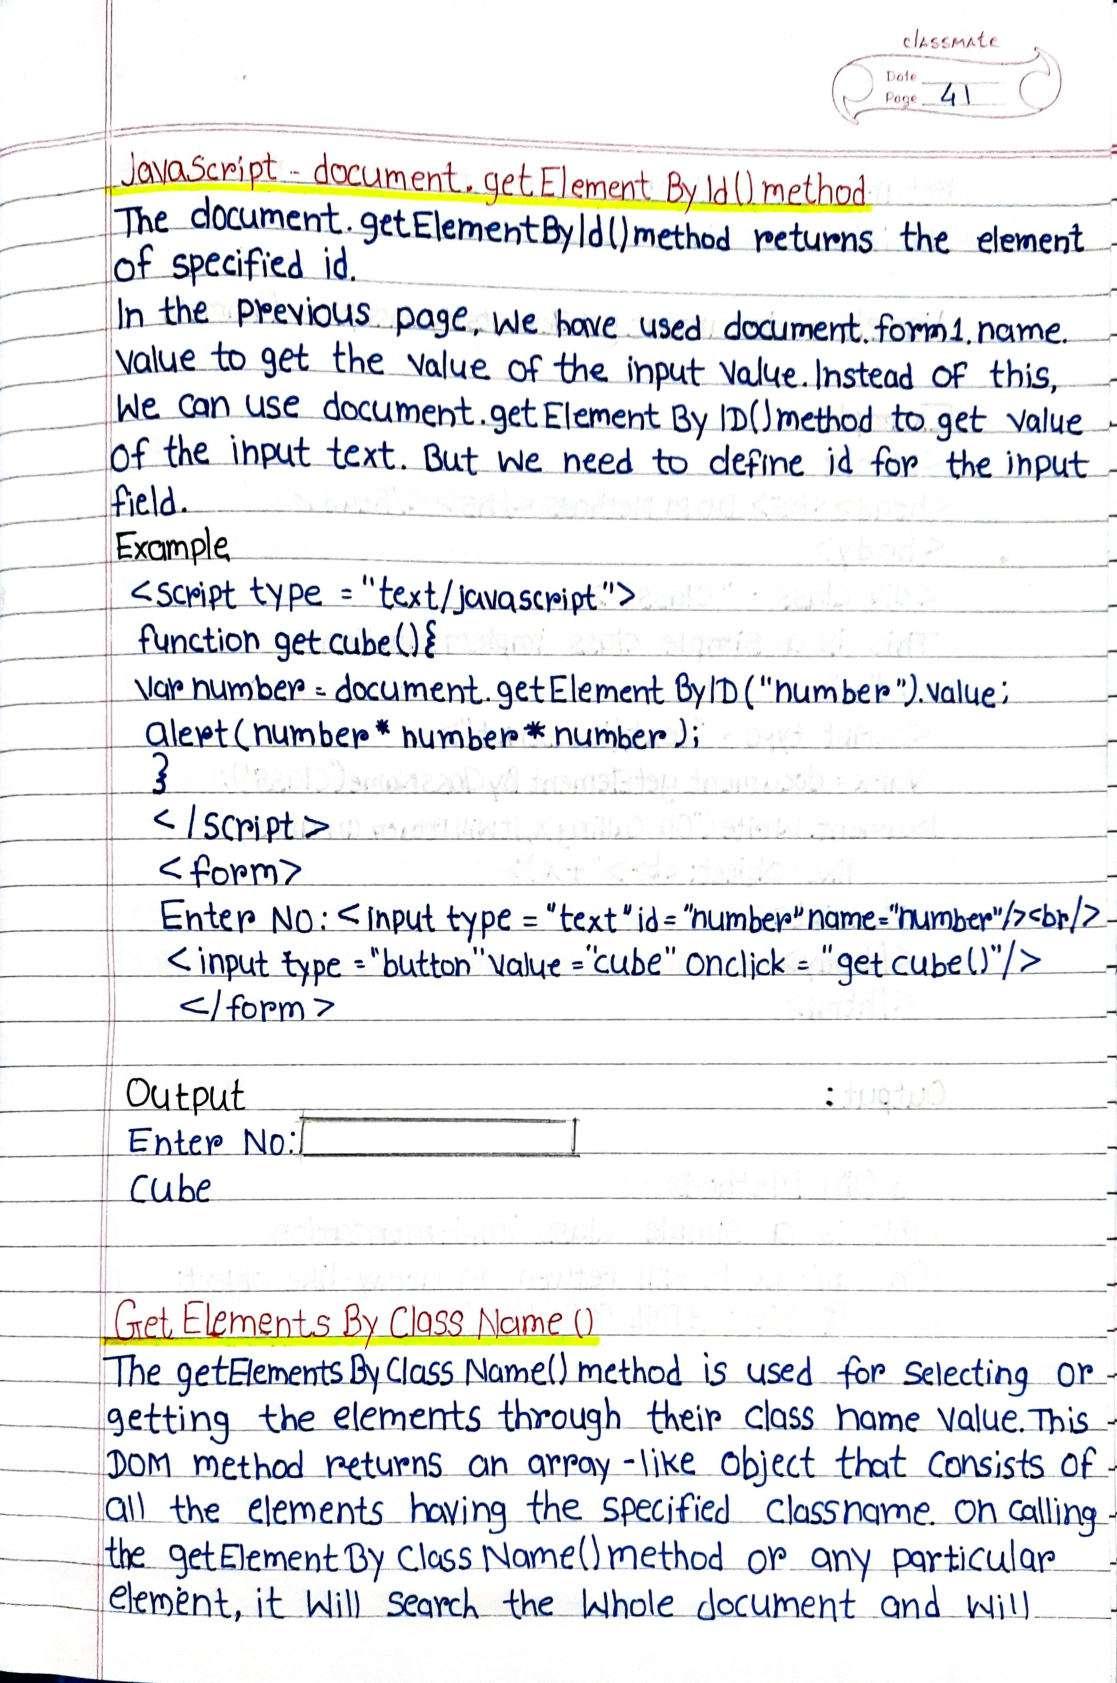 classmate
Date
Page 41
JavaScript - document.getElement By Id() method
The document.getElementById() method returns the element
of specified id.
In the previous page, we have used document.form1.name.
value to get the value of the input value. Instead of this,
We can use document.getElement By ID() method to get value
of the input text. But we need to define id for the input
field.
Example
<script type = "text/javascript">
function getcube(){
var number = document.getElement ByID("number").value;
alert(number* number* number);
}
</script>
<form>
Enter No:<input type = "text" id = "number" name="number"/><br/>
<input type = "button" value = "cube" onclick = "getcube()"/>
</form>
Output :
Enter No:
Cube
Get Elements By Class Name ()
The getElements By Class Name() method is used for selecting or
getting the elements through their class name value. This
DOM method returns an array-like object that consists of
all the elements having the specified classname. On calling
the getElement By Class Name() method or any particular
element, it will search the whole document and will